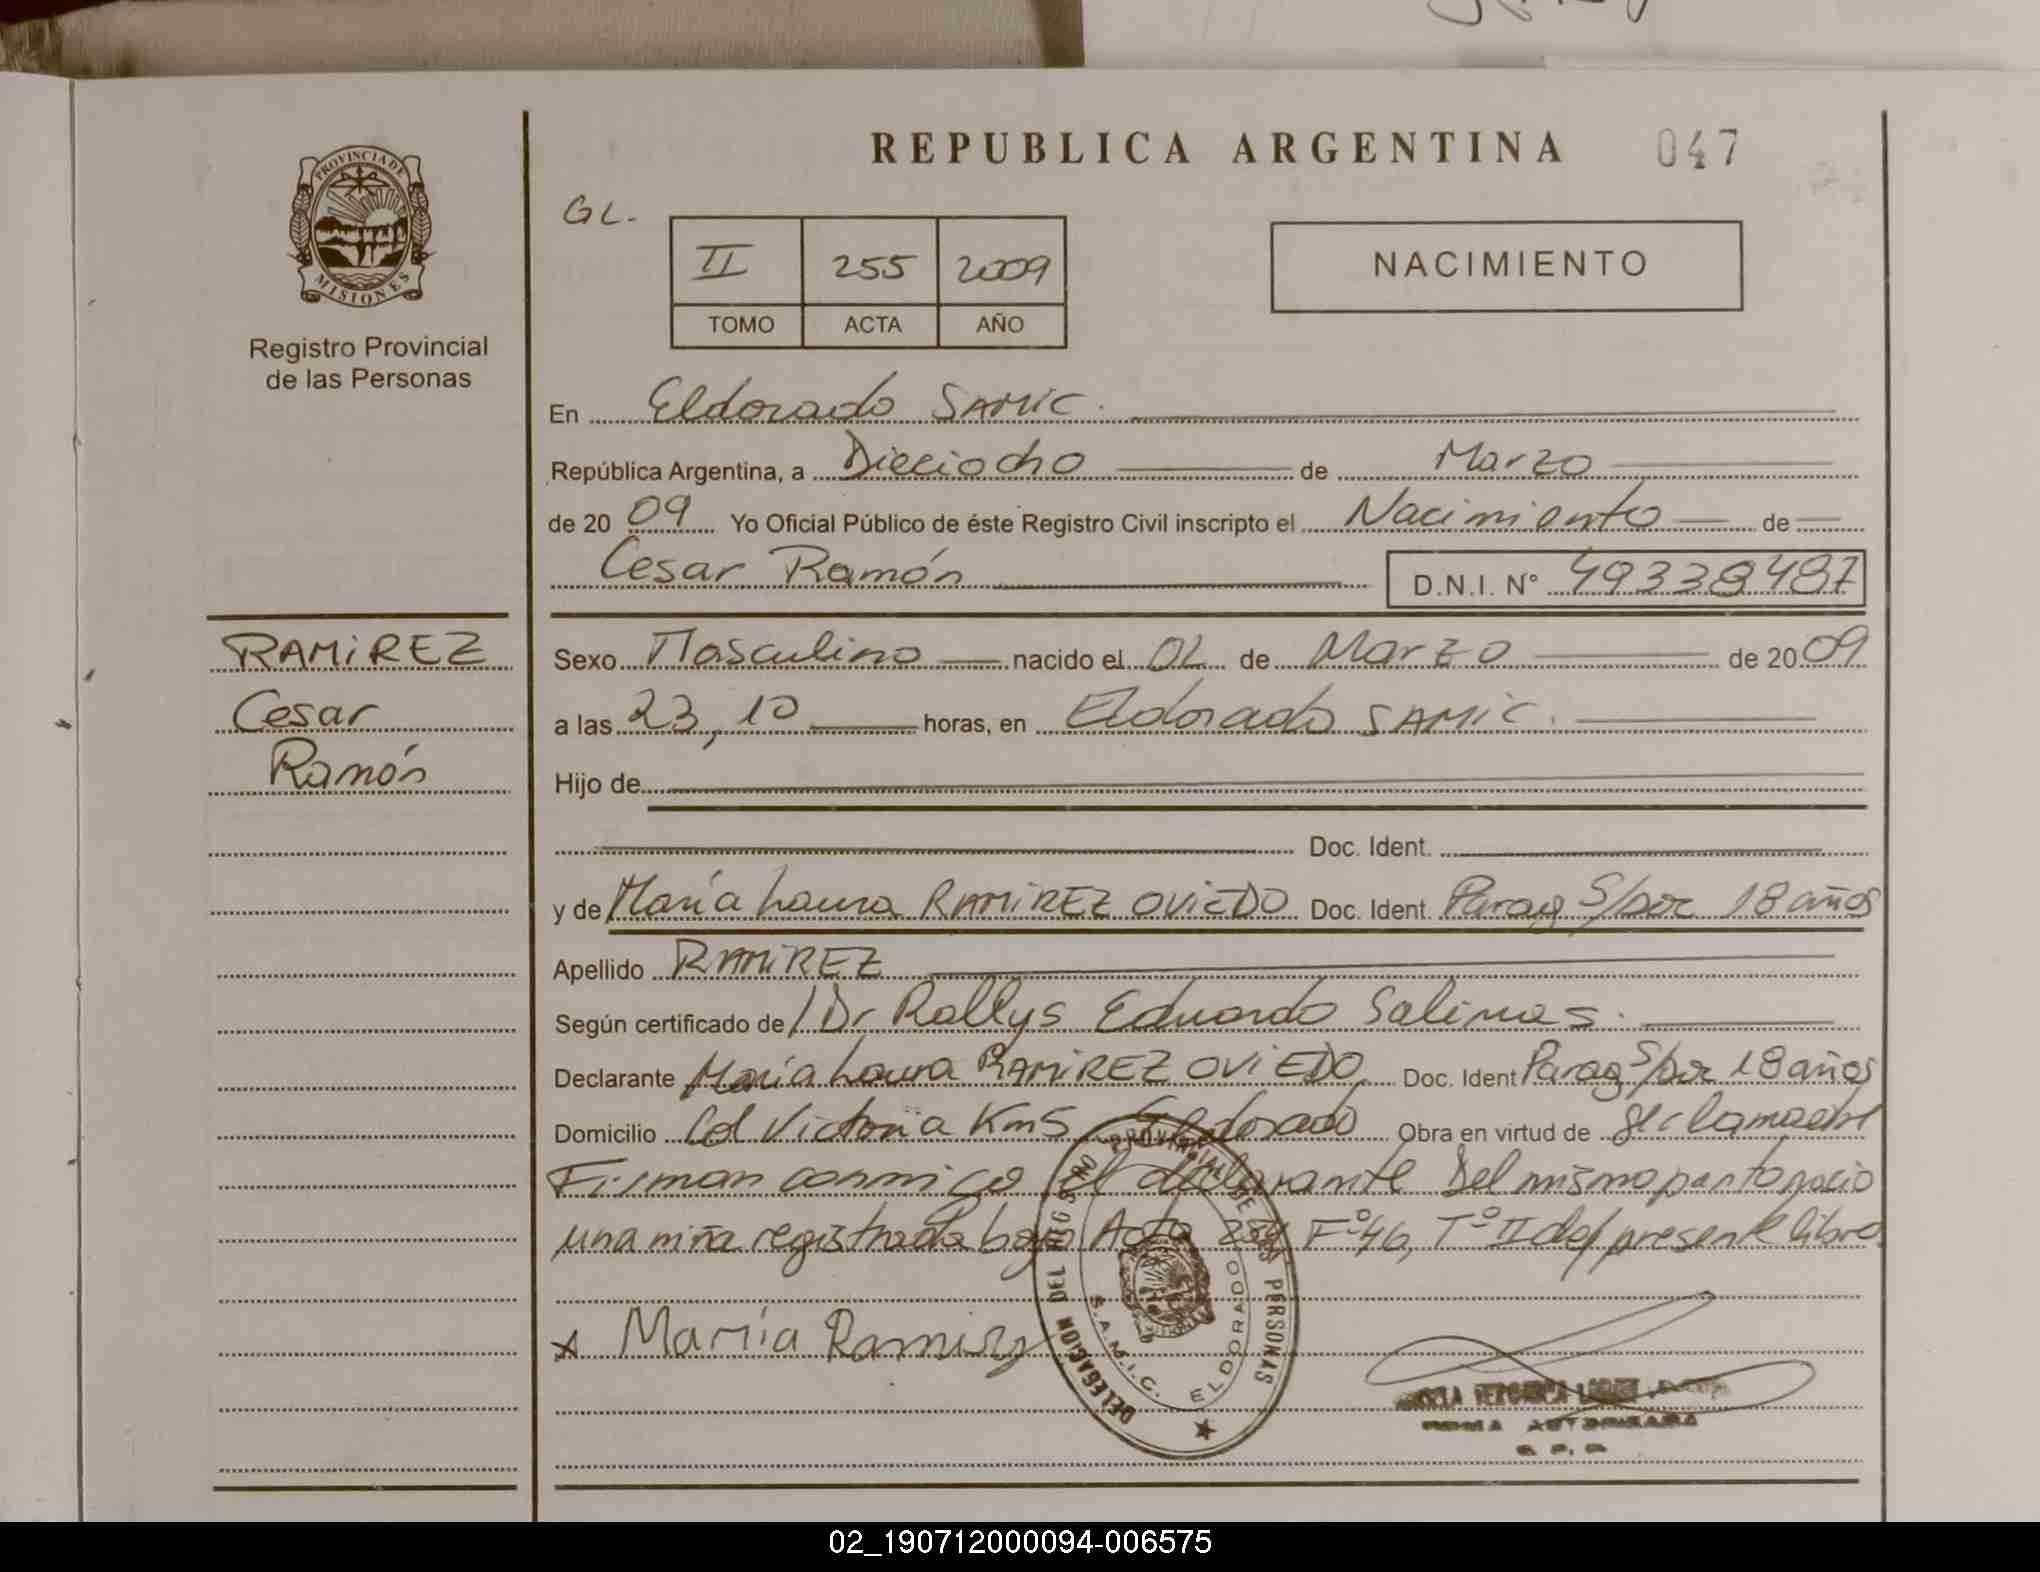 REPUBLICA ARGENTINA 047
PROVINCIA DE MISIONES
Registro Provincial
de las Personas
GL.
II 255 2009
TOMO ACTA AÑO
NACIMIENTO
En Eldorado SAMIC.
República Argentina, a Dieciocho de Marzo
de 20 09 Yo Oficial Público de éste Registro Civil inscripto el Nacimiento de
Cesar Ramón D.N.I. Nº 49338487
RAMIREZ
Cesar
Ramón
Sexo Masculino nacido el 02 de Marzo de 20 09
a las 23,10 horas, en Eldorado SAMIC.
Hijo de
Doc. Ident.
y de María Laura RAMIREZ OVIEDO Doc. Ident. Parag S/doc 18 años
Apellido RAMIREZ
Según certificado de Dr Rollys Eduardo Salinas.
Declarante María Laura RAMIREZ OVIEDO Doc. Ident Parag S/doc 18 años
Domicilio Col Victoria Km5 Eldorado Obra en virtud de la madre
Firman conmigo el declarante Del mismo parto nacio
una niña registrada bajo Acta 254 Fº46, Tº II del presente libro.
x María Ramirez
DELEGACION DEL REGISTRO PROVINCIAL DE LAS PERSONAS
S.A.M.I.C. ELDORADO
FIRMA AUTORIZADA
02_190712000094-006575